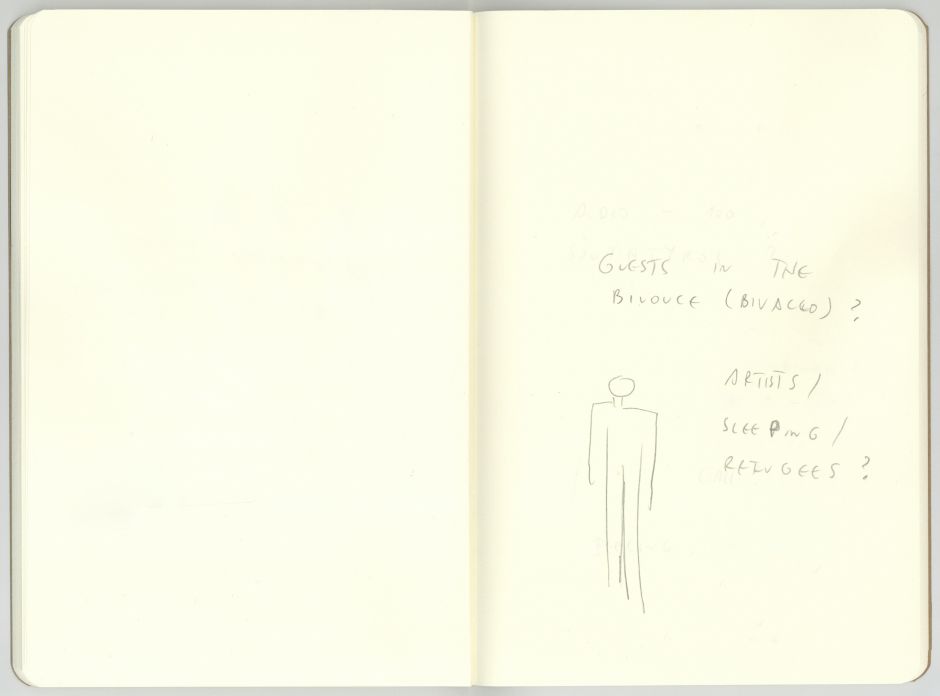 GUESTS IN THE
BIVOUCE (BIVACCO) ?
ARTISTS /
SLEEPING /
REFUGEES ?